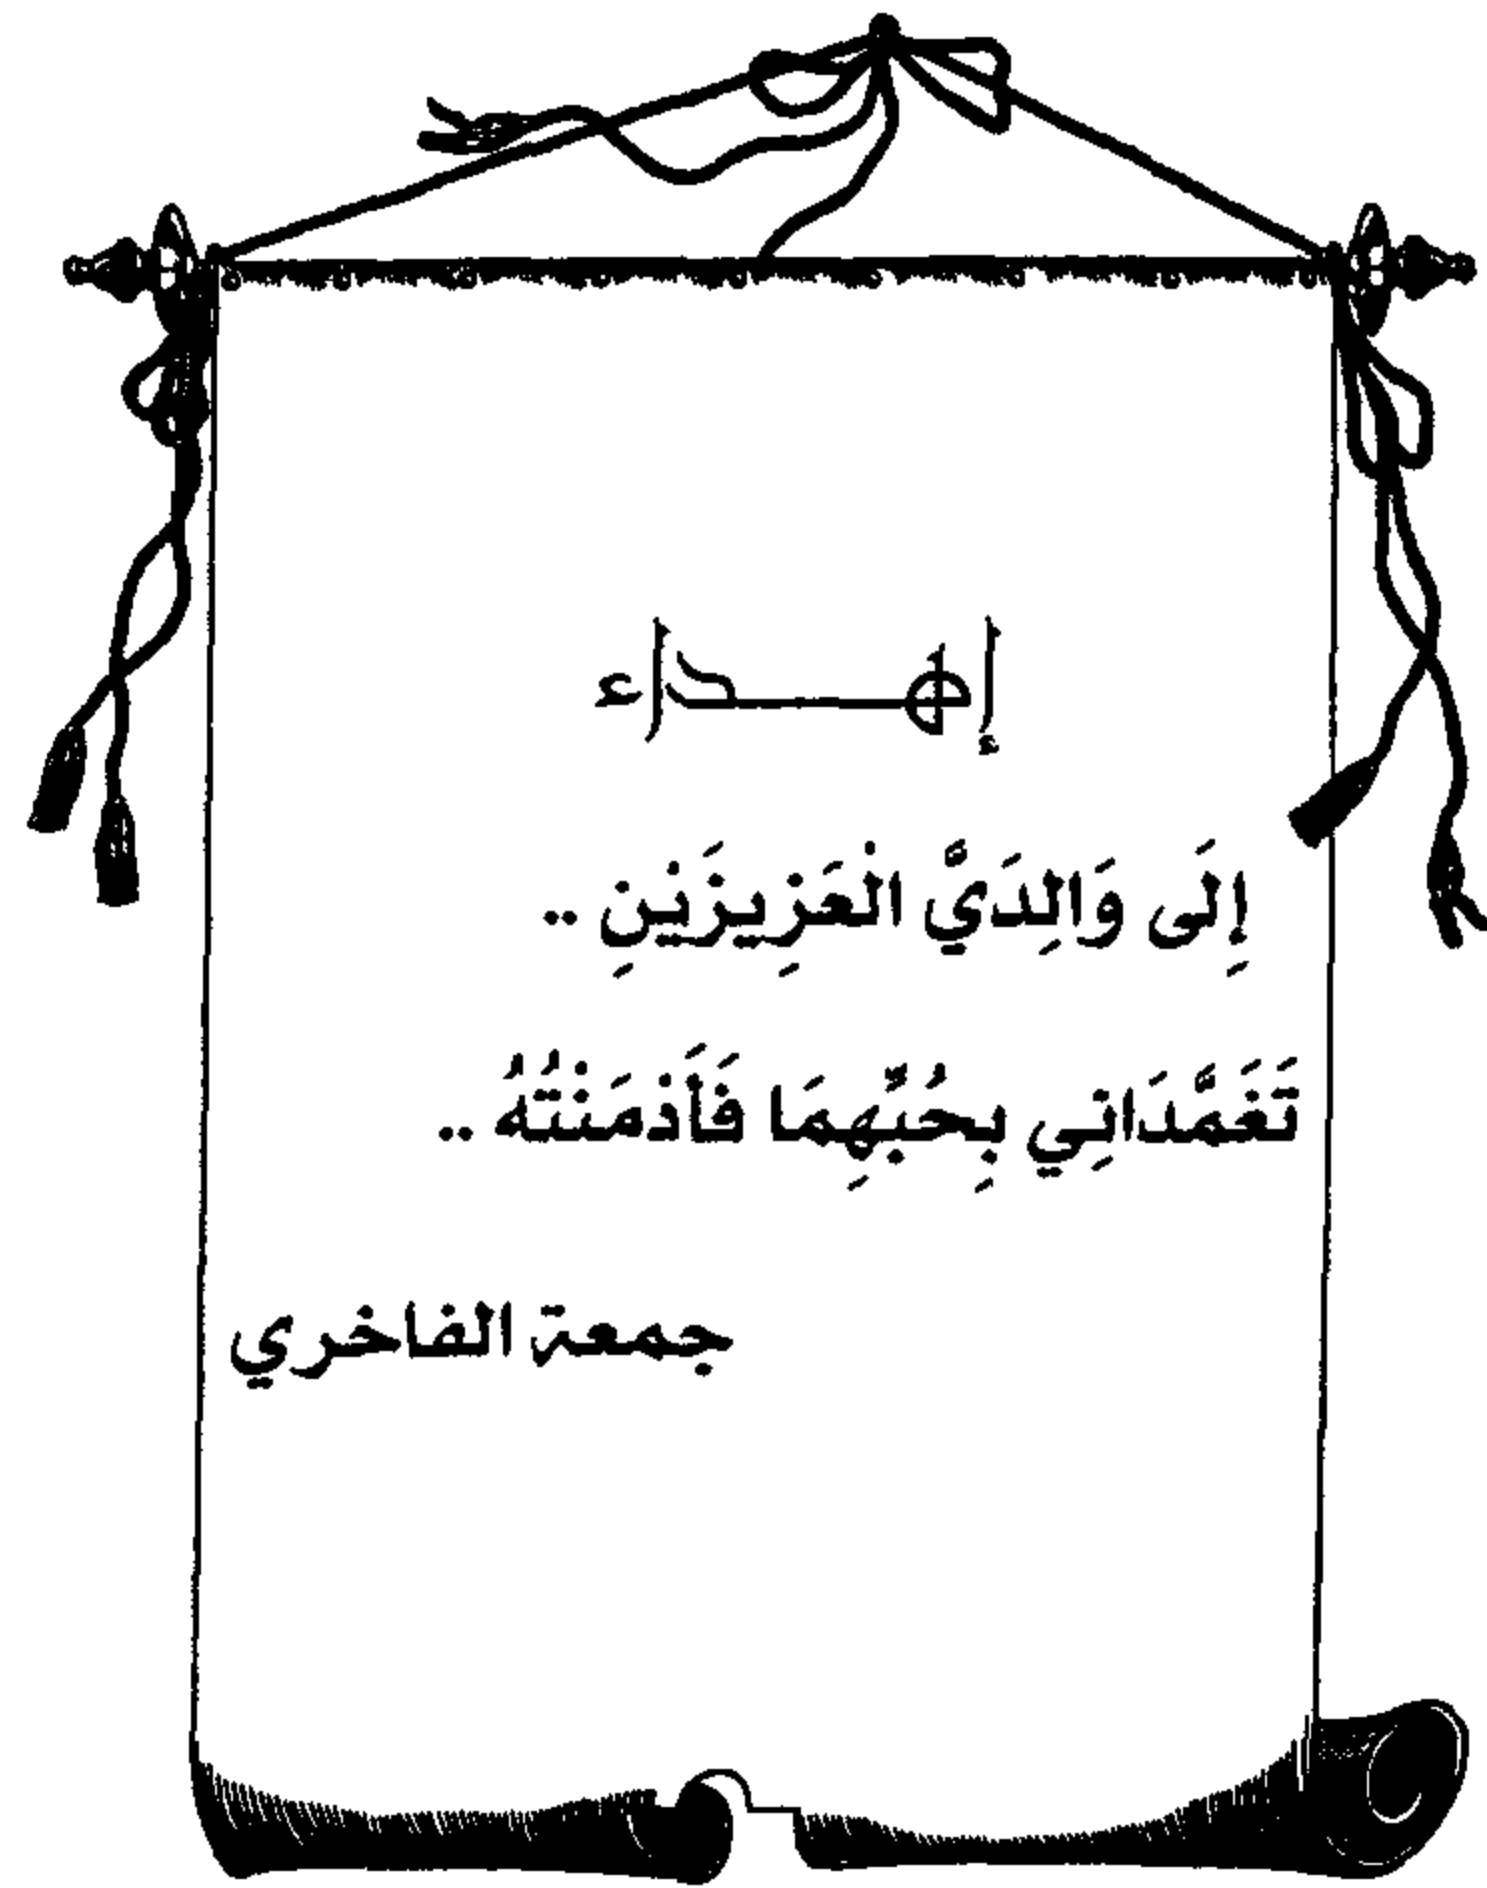 إهــداء
إِلَى وَالِدَيَّ الْعَزِيزَيْنِ ..
تَغَمَّدَانِي بِحُبِّهِمَا فَأَدْمَنْتُهُ ..
جمعة الفاخري